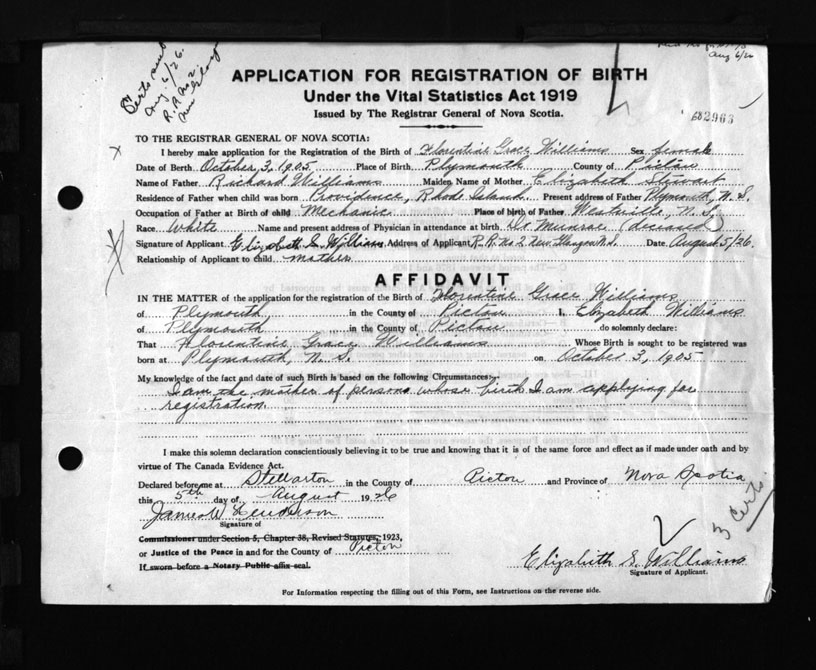 Certs sent
Aug. 6/26.
R.R. No 2.
New Glasg
Aug 6/26
APPLICATION FOR REGISTRATION OF BIRTH
Under the Vital Statistics Act 1919
Issued by The Registrar General of Nova Scotia.
602963
TO THE REGISTRAR GENERAL OF NOVA SCOTIA:
I hereby make application for the Registration of the Birth of Florentine Grace Williams Sex female
Date of Birth October 3, 1905 Place of Birth Plymouth County of Pictou
Name of Father Richard Williams Maiden Name of Mother Elizabeth Stewart
Residence of Father when child was born Providence, Rhode Island. Present address of Father Plymouth, N. S.
Occupation of Father at Birth of child Mechanic Place of birth of Father Westville, N. S.
Race White Name and present address of Physician in attendance at birth Dr Munroe (deceased)
Signature of Applicant Elizabeth S. Williams Address of Applicant R.R. No. 2 New Glasgow N.S. Date August 5/26.
Relationship of Applicant to child mother
AFFIDAVIT
IN THE MATTER of the application for the registration of the Birth of Florentine Grace Williams
of Plymouth, in the County of Pictou I, Elizabeth Williams
of Plymouth in the County of Pictou do solemnly declare:
That Florentine Grace Williams Whose Birth is sought to be registered was
born at Plymouth, N. S. on October 3, 1905
My knowledge of the fact and date of such Birth is based on the following Circumstances:-
I am the mother of person whose birth I am applying for
registration.
I make this solemn declaration conscientiously believing it to be true and knowing that it is of the same force and effect as if made under oath and by
virtue of The Canada Evidence Act.
Declared before me at Stellarton in the County of Picton and Province of Nova Scotia
this 5th day of August 1926
James W Henderson
Signature of
Commissioner under Section 5, Chapter 38, Revised Statutes, 1923,
or Justice of the Peace in and for the County of Picton
If sworn before a Notary Public affix seal.
3 Certs.
Elizabeth S. Williams
Signature of Applicant.
For Information respecting the filling out of this Form, see Instructions on the reverse side.